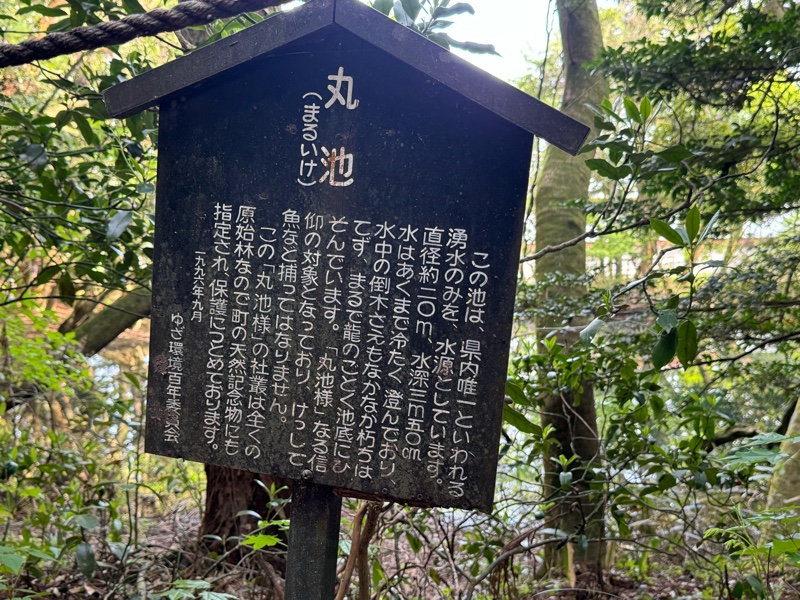 丸池
（まるいけ）
この池は、県内唯一といわれる
湧水のみを、水源としています。
直径約二〇m、水深三m五〇㎝
水はあくまで冷たく澄んでおり
水中の倒木さえもなかなか朽ちは
てず まるで龍のごとく池底にひ
そんでいます。「丸池様」なる信
仰の対象となっており けっして
魚など捕ってはなりません。
この「丸池様」の社叢は全くの
原始林なので町の天然記念物にも
指定され 保護につとめております。
一九九六年九月
ゆざ環境百年委員会